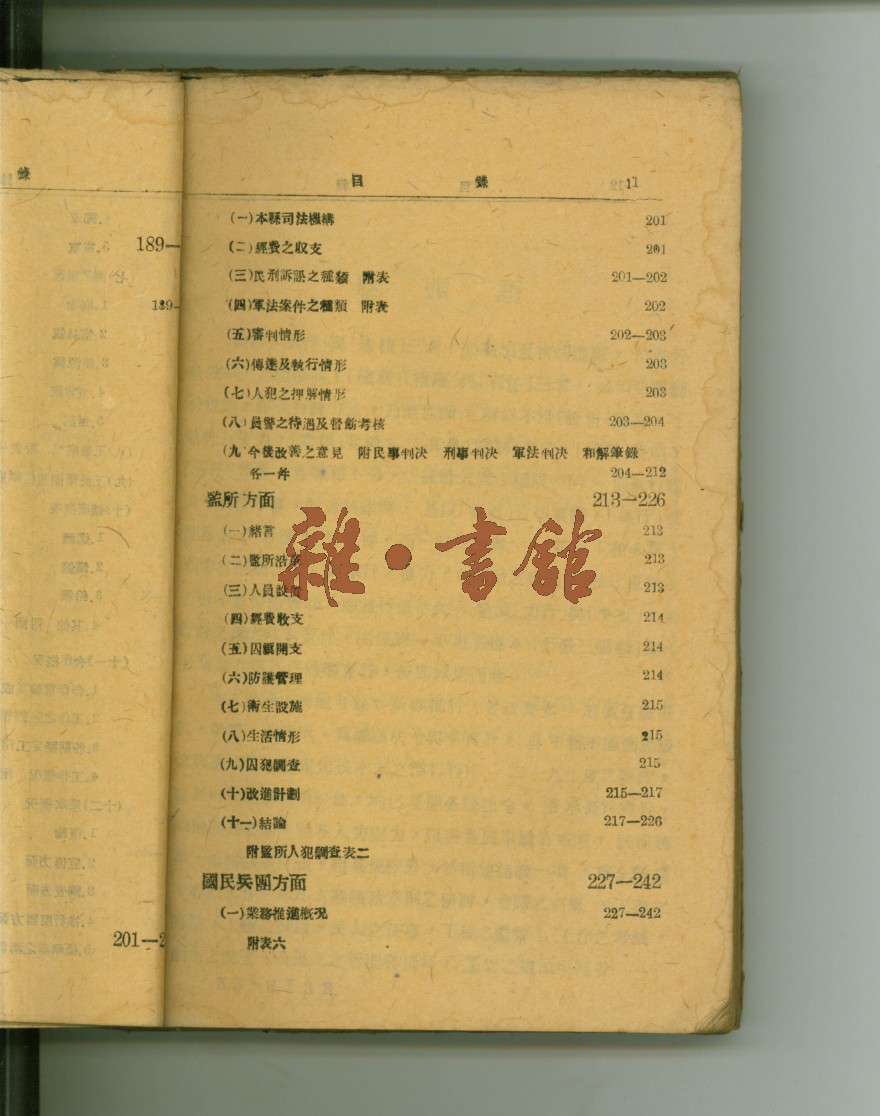 錄
189—
189-
201—2
目 錄 11
(一)本縣司法機構 201
(二)經費之収支 201
(三)民刑訴訟之種類 附表 201—202
(四)軍法案件之種類 附表 202
(五)審判情形 202—203
(六)傳達及執行情形 203
(七)人犯之押解情形 203
(八)員警之待遇及督飭考核 203—204
(九 今後改善之意見 附民事判決 刑事判決 軍法判決 和解筆錄
各一件 204—212
監所方面 213—226
(一)緒言 213
(二)監所沿革 213
(三)人員設備 213
(四)經費收支 214
(五)囚糧開支 214
(六)防護管理 214
(七)衛生設施 215
(八)生活情形 215
(九)囚犯調查 215
(十)改進計劃 215—217
(十一)結論 217—226
附監所人犯調查表二
國民兵團方面 227—242
(一)業務推進概况 227—242
附表六
雜·書館